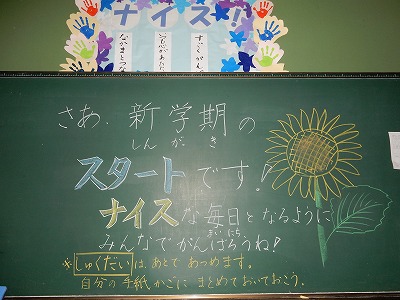 ナイス!!
さあ、新学期の
しんがっき
スタートです!
ナイスな毎日となるように
まいにち
みんなでがんばろうね!
※しゅくだいは、あとであつめます。
自分の手紙かごにまとめておいておこう。